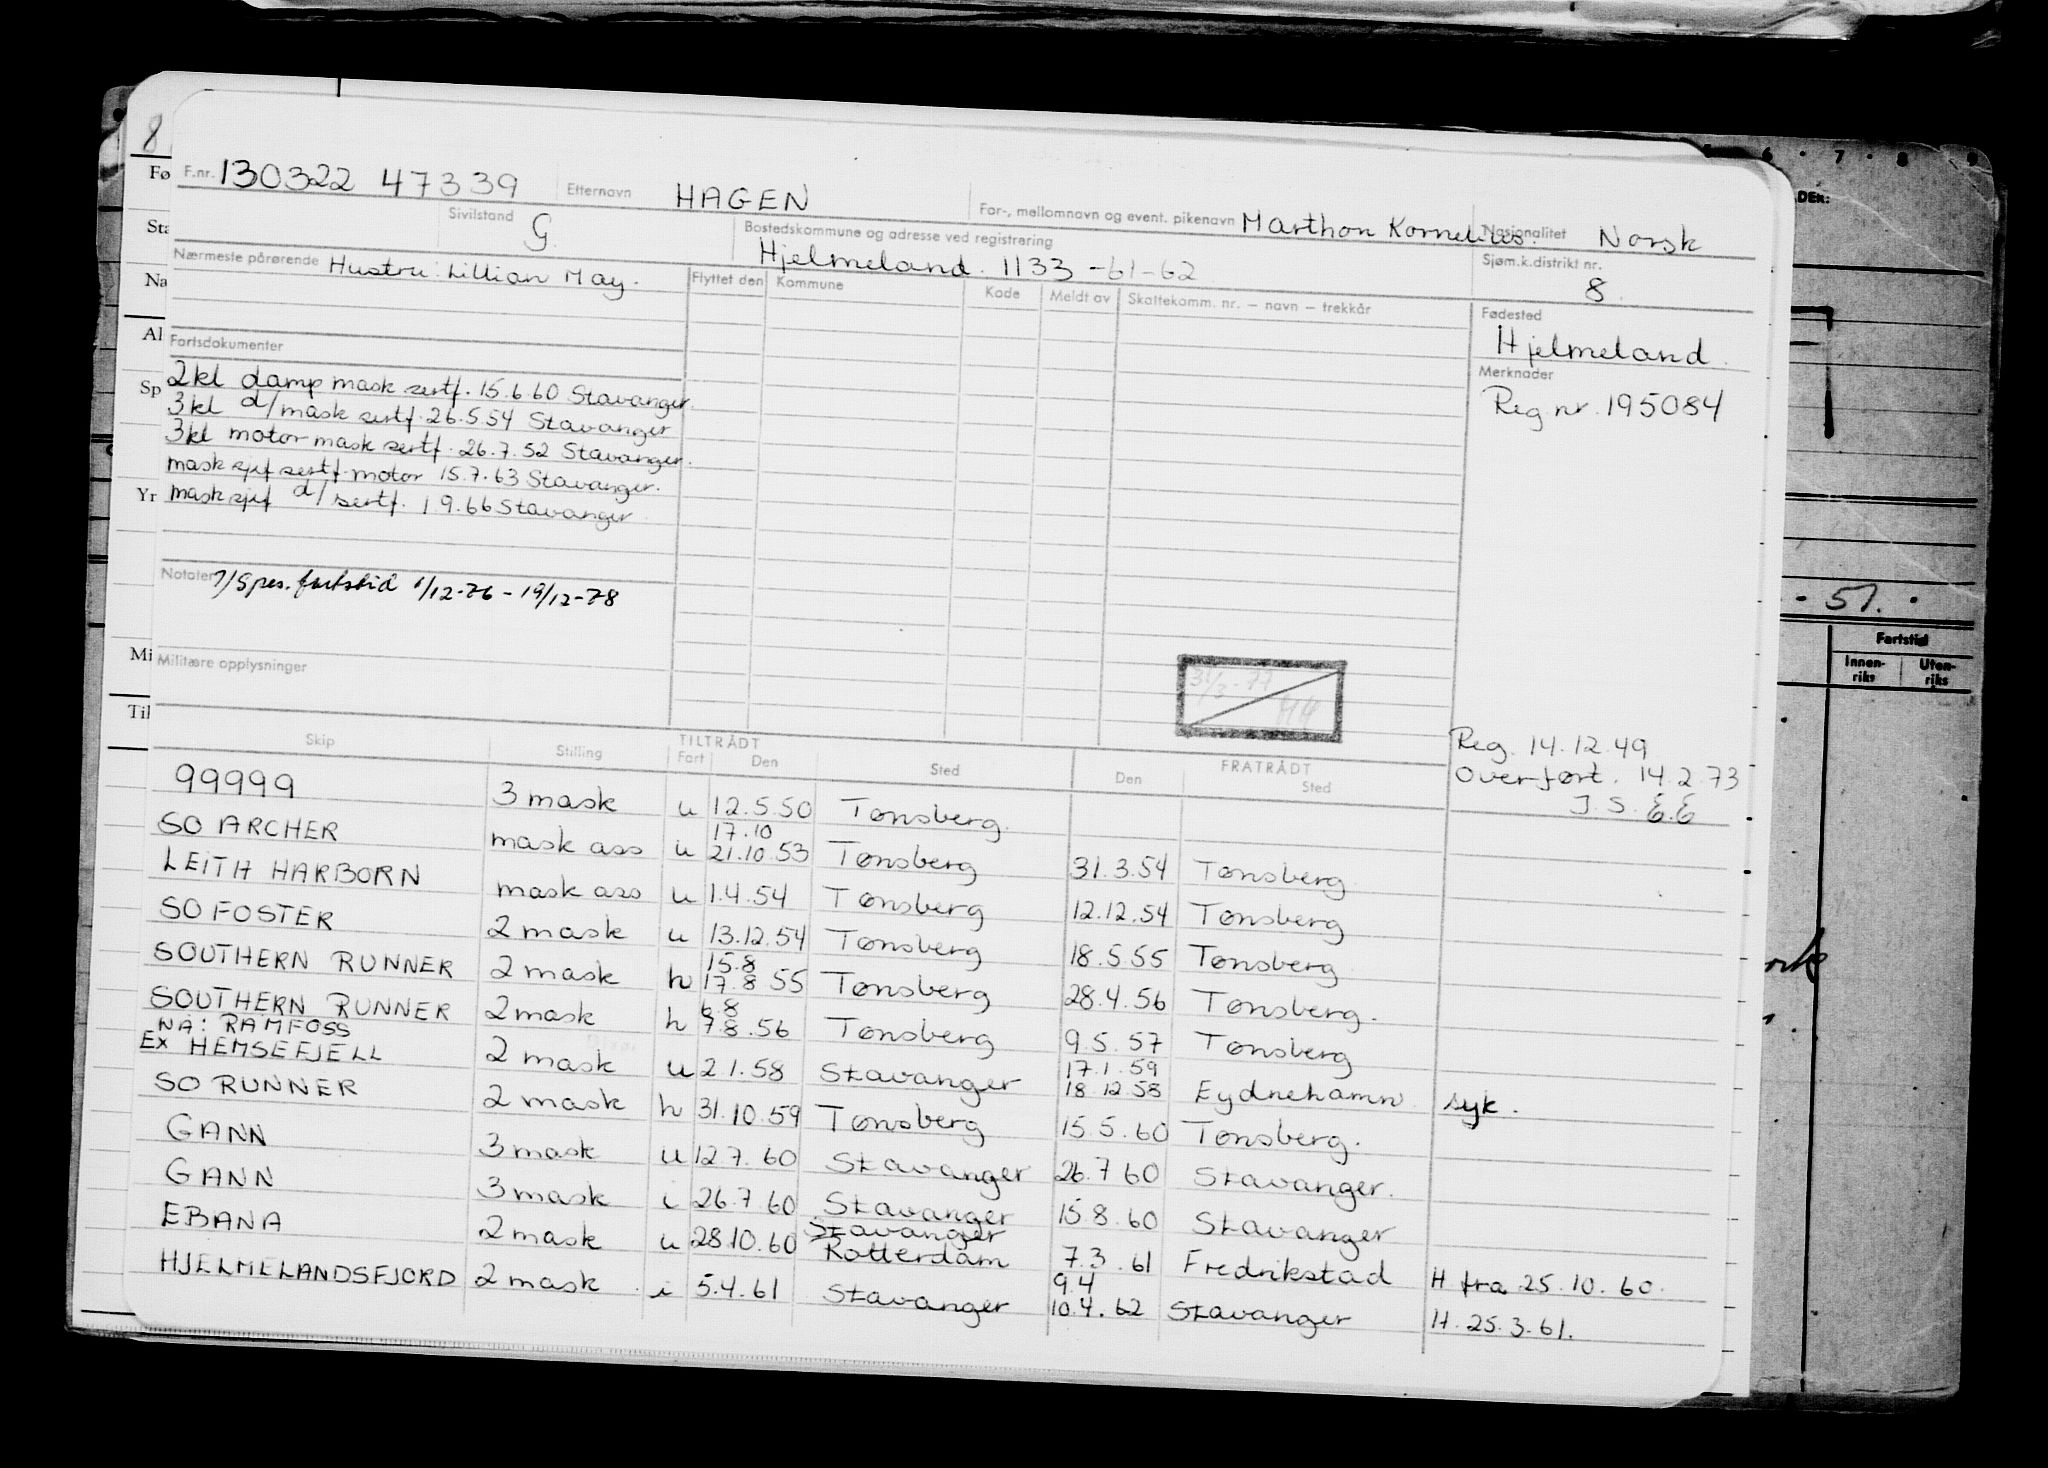 8
F.nr. 130322 47339 Etternavn HAGEN For-, mellomnavn og event. pikenavn Marthon Kornelius. Nasjonalitet Norsk
Sivilstand G Bostedskommune og adresse ved registrering Hjelmeland. 1133 -61-62 Sjøm.k.distrikt nr. 8
Nærmeste pårørende Hustru: Lillian May. Flyttet den Kommune Kode Meldt av Skattekomm. nr. – navn – trekkår
Fødested
Hjelmeland.
Merknader
Reg nr. 195084
Fartsdokumenter
2kl damp mask sertf. 15.6.60 Stavanger.
3kl d/mask sertf. 26.5.54 Stavanger
3kl motor mask sertf. 26.7.52 Stavanger.
mask sjef sertf. motor 15.7.63 Stavanger.
mask sjef d/ sertf. 1 9.66 Stavanger
Notater 7/Spes. fartstid 1/12-76 - 19/12-78
Militære opplysninger
31/3-77
Reg. 14.12.49
Overført. 14.2.73
J.S. E.E
TILTRÅDT FRATRÅDT
Skip Stilling Fart Den Sted Den Sted
99999 3 mask u 12.5.50 Tønsberg.
17.10
SO ARCHER mask ass u 21.10.53 Tønsberg 31.3.54 Tønsberg
LEITH HARBORN mask ass u 1.4.54 Tønsberg 12.12.54 Tønsberg
SO FOSTER 2 mask u 13.12.54 Tønsberg 18.5.55 Tønsberg
15.8
SOUTHERN RUNNER 2 mask h 17.8 55 Tønsberg 28.4.56 Tønsberg.
6.8
SOUTHERN RUNNER 2 mask h 7.8.56 Tønsberg 9.5.57 Tønsberg
NA: RAMFOSS 17.1.59
EX HEMSEFJELL 2 mask u 2.1.58 Stavanger 18.12 58 Eydnehamn syk.
SO RUNNER 2 mask h 31.10.59 Tønsberg 15.5.60 Tønsberg.
GANN 3 mask u 12.7.60 Stavanger 26.7 60 Stavanger.
GANN 3 mask i 26.7.60 Stavanger 15.8.60 Stavanger
Stavanger
EBANA 2 mask u 28.10.60 Rotterdam 7.3.61 Fredrikstad H fra 25.10.60.
9.4
HJELMELANDSFJORD 2 mask i 5.4.61 Stavanger 10.4.62 Stavanger H. 25.3.61.
Fø
Sta
Na
Al
Sp
Yr
Mi
Til
6 7 8 9
- 51.
Fartstid
Innen-
riks
Uten-
riks